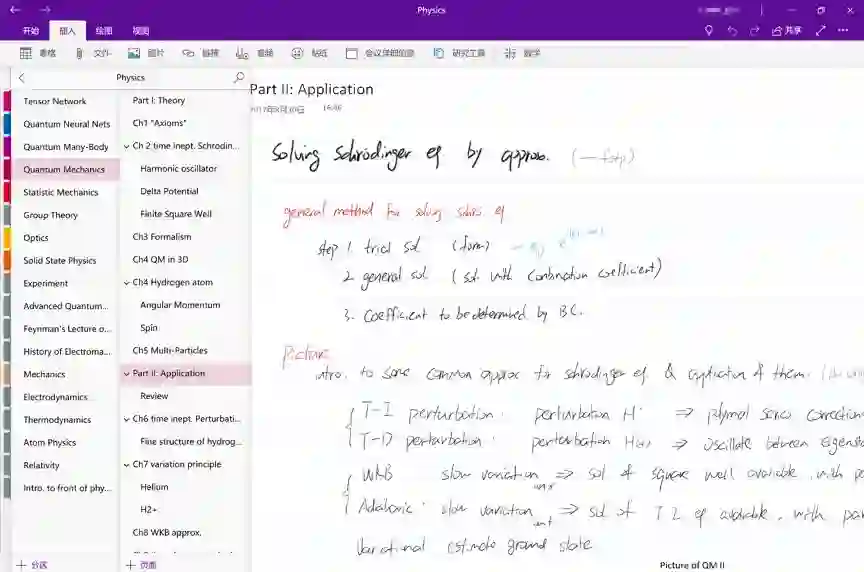 Physics
开始 插入 绘图 视图
共享
表格 文件 图片 链接 音频 贴纸 会议详细信息 研究工具 数学
Physics
Tensor Network
Quantum Neural Nets
Quantum Many-Body
Quantum Mechanics
Statistic Mechanics
Group Theory
Optics
Solid State Physics
Experiment
Advanced Quantum...
Feynman's Lecture o...
History of Electroma...
Mechanics
Electrodynamics
Thermodynamics
Atom Physics
Relativity
Intro. to front of phy...
分区
Part I: Theory
Ch1 "Axioms"
Ch 2 time inept. Schrodin...
Harmonic oscillator
Delta Potential
Finite Square Well
Ch3 Formalism
Ch4 QM in 3D
Ch4 Hydrogen atom
Angular Momentum
Spin
Ch5 Multi-Particles
Part II: Application
Review
Ch6 time inept. Perturbati...
Fine structure of hydrog...
Ch7 variation principle
Helium
H2+
Ch8 WKB approx.
页面
Part II: Application
Solving Schrodinger eq by approx.
general method for solving schrs eq
step 1. trial sol (form)
2. general sol (sol with combination coefficient)
3. coefficient to be determined by BC.
Picture
intro. to some common approx for schrodinger eq & application of them.
T-I perturbation. perturbation H' ⇒ polymal series correction
T-D perturbation. perturbation H(t) ⇒ oscillate between eigensta
WKB slow variation wrt x ⇒ sol of square well available, with pa
Adiabatic. slow variation wrt t ⇒ sol of T-I eq available, with para
Variational estimate ground state
Picture of QM II